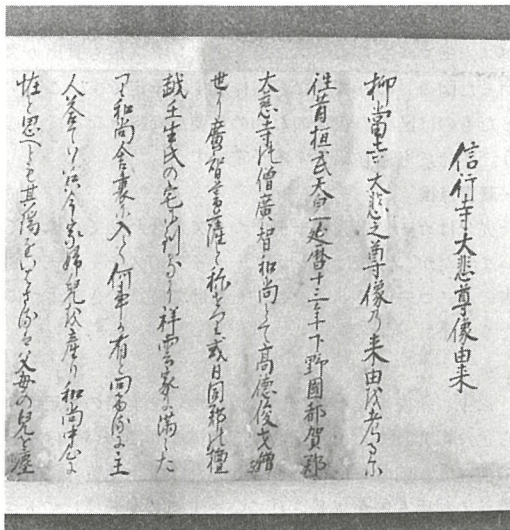 信行寺大悲尊像由来
抑當寺大悲之尊像乃来由を考るに
往昔桓武天皇延暦十三年下野國都賀郡
大慈寺能僧廣智和尚とて高徳俊才の僧
世に廣智菩薩と称す或日同郡
越壬生氏の宅に到るより祥雲家に満した
り和尚舎裏に入て何事か有と問るに主
人答ていふ今家婦兒を産り和尚中心に
怪と思へとも其傷をいて父母の兒を